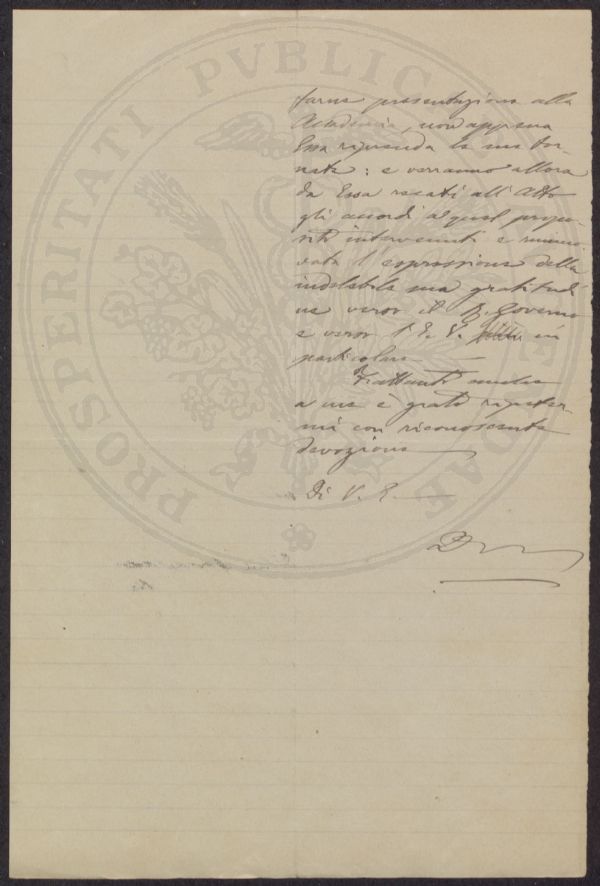 PROSPERITATI PVBLICAE
farne presentazione alla
Accademia, non appena
Essa riprenda le sue tor-
nate: e verranno allora
da Essa recati all'atto
gli accordi al qual propo-
sito intervenuti e rinno-
vata l'espressione della
indelebile sua gratitudi-
ne verso il R. Governo
e verso l'E. V. in
particolare
Frattanto
a me è grato ripeter-
mi con riconoscente
devozione
Di V. E.